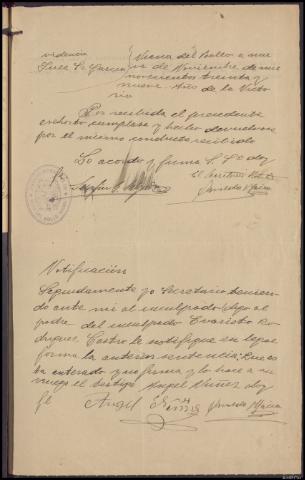 videncia
Juez Sr. Garcia
Viana del Bollo a nue
ve de Noviembre de mil
novecientos treinta y
nueve Año de la Victo
ria
Por recibida el precedente
exhorto cumplase y hecho devuelvase
por el mismo conducto recibido
Lo acordó y firma S. Sª doy
fé
El Secretario
Notificación
Seguidamente yo Secretario tenien
do ante mi al inculpado digo al
padre del inculpado Evaristo Ro
driguez Castro le notifique en legal
forma la anterior sentencia, queda
enterado y no firma y lo hace a su
ruego el testigo Angel Nuñez doy
fé
Angel Nuñez